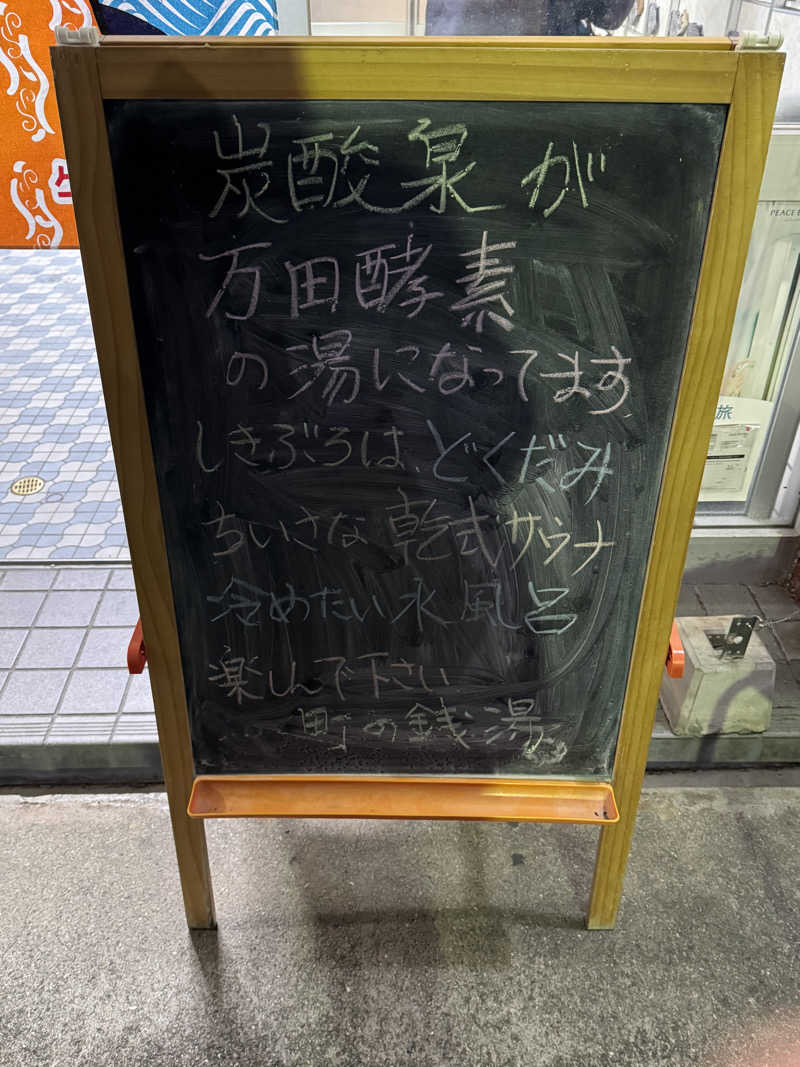 炭酸泉が
万田酵素
の湯になってます
しきぶろは、どくだみ
ちいさな乾式サウナ
冷めたい水風呂
楽しんで下さい
町の銭湯
PEACE
旅